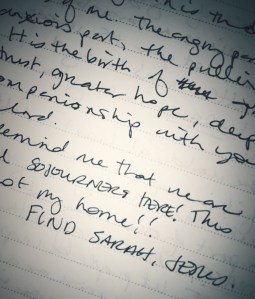 of me, the angry par
anxious part, the pulli
It is the birth of
trust, greater hope, deep
ompanionship with you
Lord.
emind me that we are
SOJOURNERS HERE! This
not my home!!
FIND SARAH, JESUS.